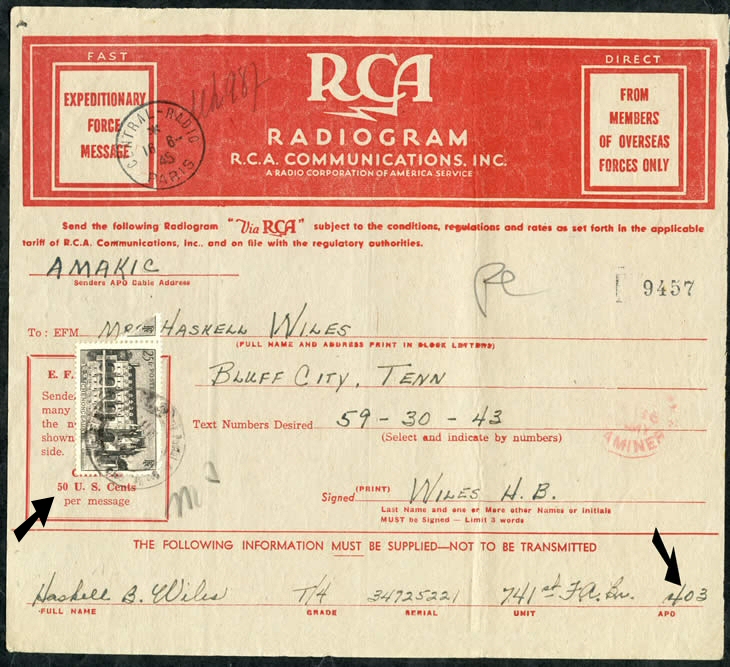 FAST
EXPEDITIONARY
FORCE
MESSAGE
RCA
RADIOGRAM
R.C.A. COMMUNICATIONS, INC.
A RADIO CORPORATION OF AMERICA SERVICE
DIRECT
FROM
MEMBERS
OF OVERSEAS
FORCES ONLY
CENTRAL-RADIO
45
PARIS
Send the following Radiogram "Via RCA" subject to the conditions, regulations and rates as set forth in the applicable
tariff of R.C.A. Communications, Inc., and on file with the regulatory authorities.
AMAKIC
Senders APO Cable Address
9457
To: EFM Mrs HASKELL WILES
(FULL NAME AND ADDRESS PRINT IN BLOCK LETTERS)
BLUFF CITY, TENN
E. F.
Sende
many
the n
shown
side.
25
Text Numbers Desired 59-30-43
(Select and indicate by numbers)
AMINER
50 U. S. Cents
per message
(PRINT)
Signed WILES H.B.
Last Name and one or More other Names or Initials
MUST be Signed — Limit 3 words
THE FOLLOWING INFORMATION MUST BE SUPPLIED—NOT TO BE TRANSMITTED
Haskell B. Wiles T/4 34725221 741st F.A. Bn. 403
FULL NAME GRADE SERIAL UNIT APO